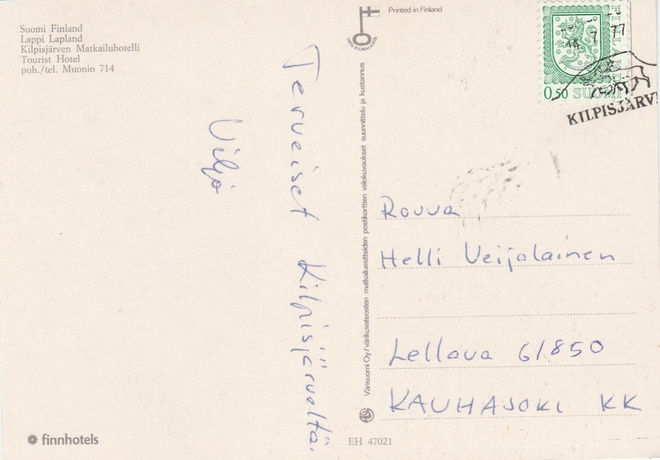 Suomi Finland
Lappi Lapland
Kilpisjärven Matkailuhotelli
Tourist Hotel
puh./tel. Muonio 714
Terveiset Kilpisjärveltä.
Viljo
finnhotels
Printed in Finland
Värisuomi Oy/värikuvateosten matkailuesitteiden postikorttien valokuvaukset suunnittelu ja kustannus
EH 47021
0,50 SUOMI
14. 7. 77
KILPISJÄRVI
Rouva
Helli Veijolainen
Lellava 61850
KAUHAJOKI KK